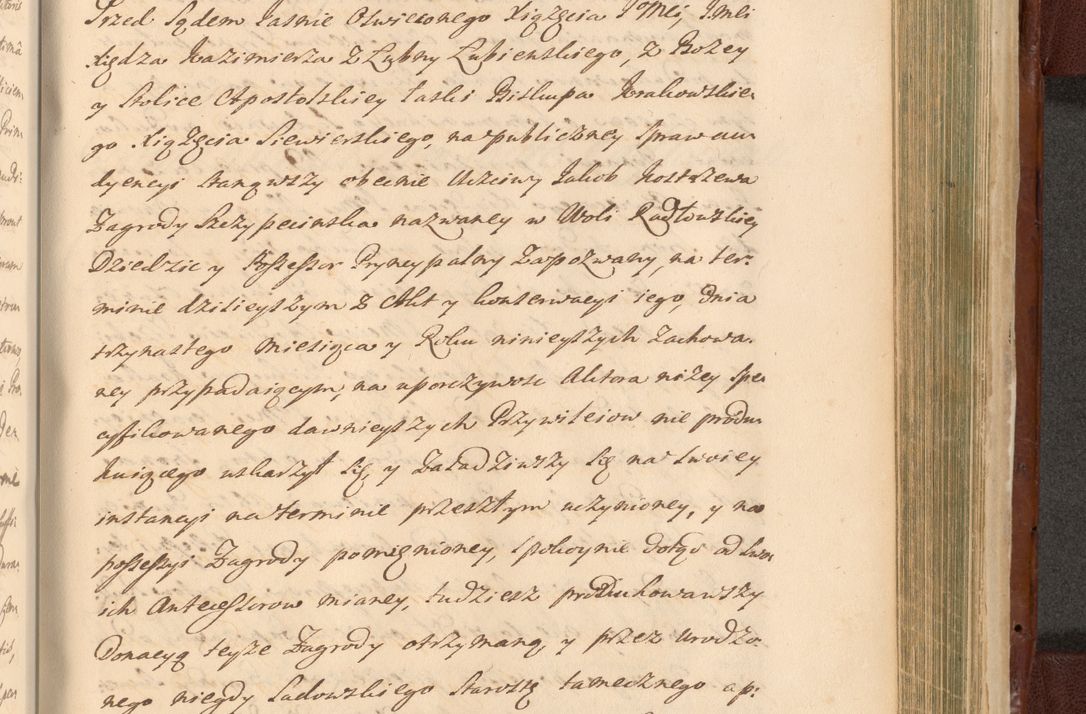 Przed Sądem Jaśnie Oświeconego Xiążęcia JoMći, Jmći
Xiędza Kazimierza z Łubny Łubieńskiego, z Bożey
y Stolice Apostolskiey łaski Biskupa Krakowskie
go Xiążęcia Siewierskiego, na publiczney spraw au
dyencyi stanąwszy obecnie Uczciwy Jakob Kostrzewa
Zagrody Szczypecinska nazwaney w Woli Radłowskiey
Dziedzic y Possessor Pryncypalny Zapozwany, na ter
minie dzisieyszym z Akt y konserwacyi iego, dnia
trzynastego miesiąca y Roku ninieyszych zachowa
ney przypadaiącym, na uporczywość Aktora niżey spe
cyfikowanego dawnieyszych Przywileiow nie produ
kuiącego uskarżył się, y Zasadziwszy się na swoiey
instancyi na terminie przeszłym uczynioney, y na
possessyi Zagrody pomienioney, spokoynie długo od swo
ich Antecessorow mianey, tudziesz produkowawszy
Donacyą teyże Zagrody otrzymaną, y przez Urodzo
nego niegdy Sadowskiego Starostę tamecznego ap: